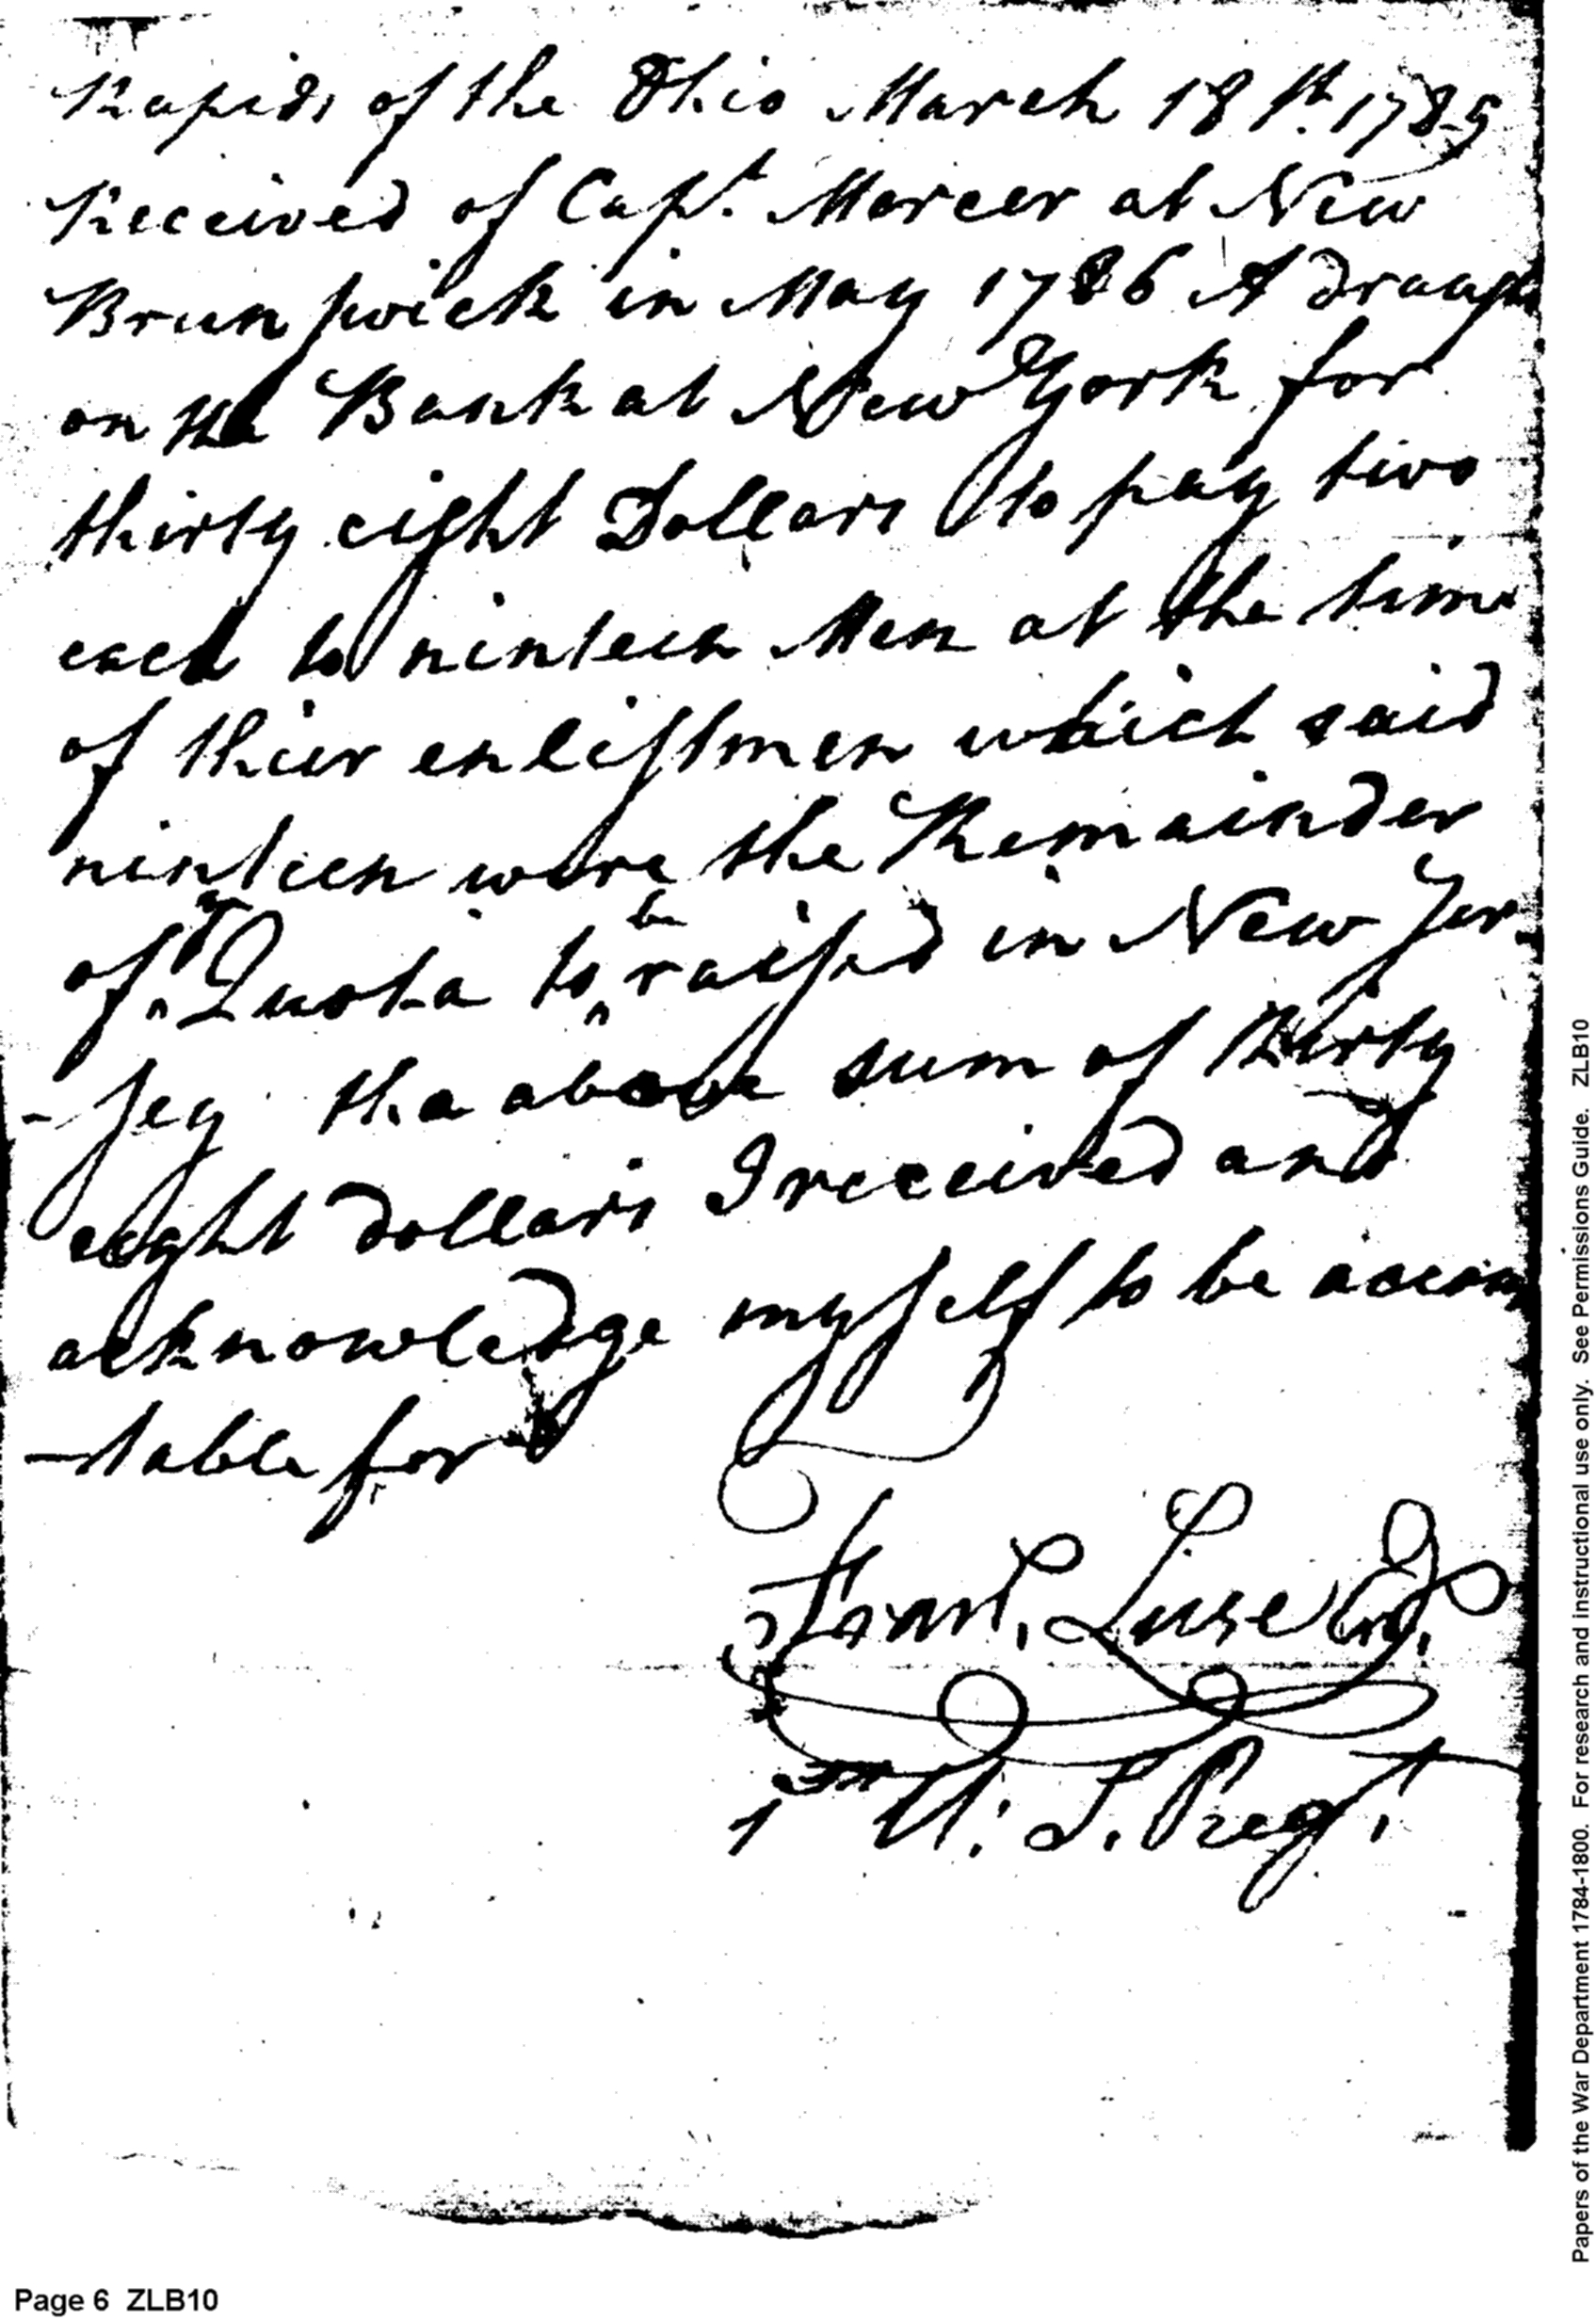 Rapids of the Ohio March 18th. 1789
Received of Capt. Mercer at New
Brunswick in May 1786 A draugh
on the Bank at New York for
thirty eight Dollars to pay two
each to ninteen Men at the time
of thier enlistmen which said
ninteen were the Remainder
of ye Quota to be raissd in New Jer
-sey the above sum of thirty
eight dollars I received and
acknowledge myself to be accoun
-table for
Fran. Luse En.
1st U. S. Regt.
Page 6 ZLB10
Papers of the War Department 1784-1800. For research and instructional use only. See Permissions Guide. ZLB10